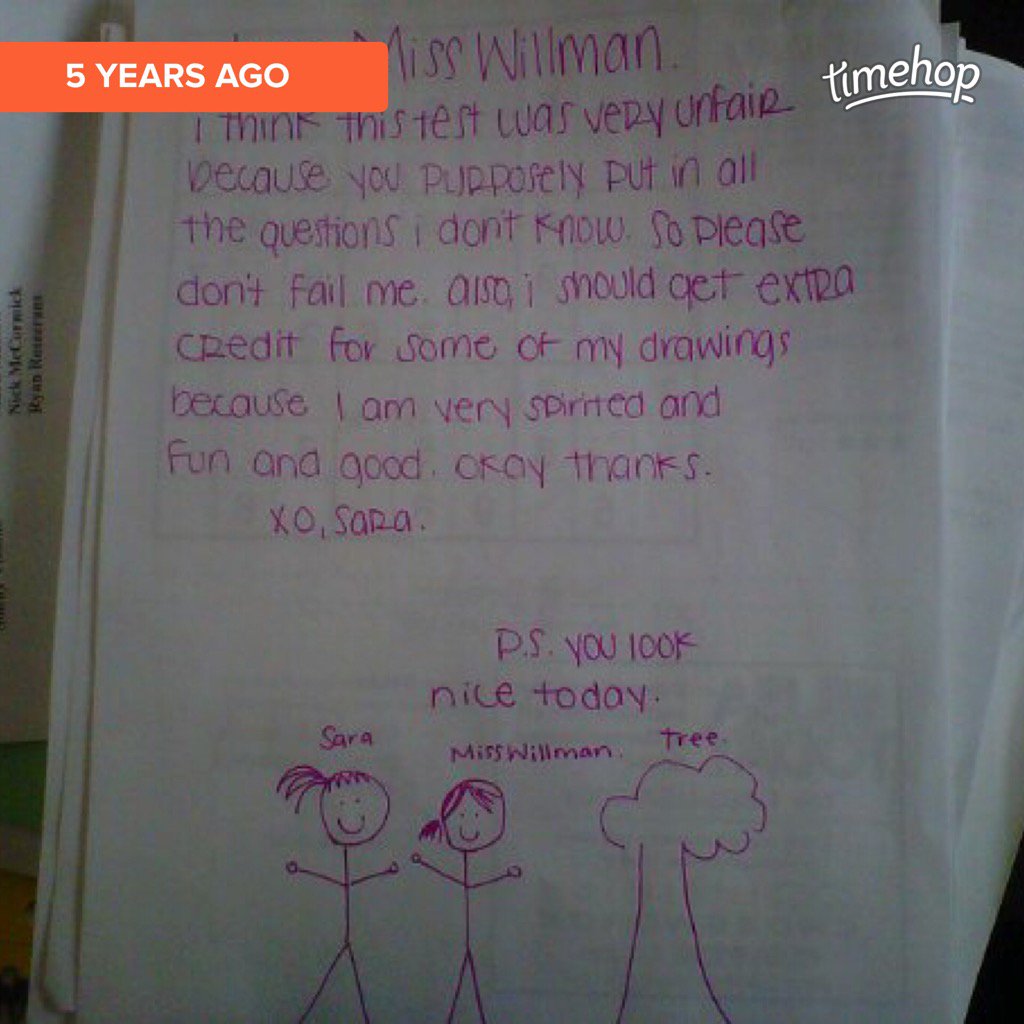 5 YEARS AGO
timehop
Miss Willman.
i think this test was very unfair
because you purposely put in all
the questions i don't know. so please
don't fail me. also, i should get extra
credit for some of my drawings
because I am very spirited and
fun and good. okay thanks.
XO, Sara.
P.S. you look
nice today.
Sara
Miss Willman.
Tree.
Nick McCormick
Ryan Rosecrans